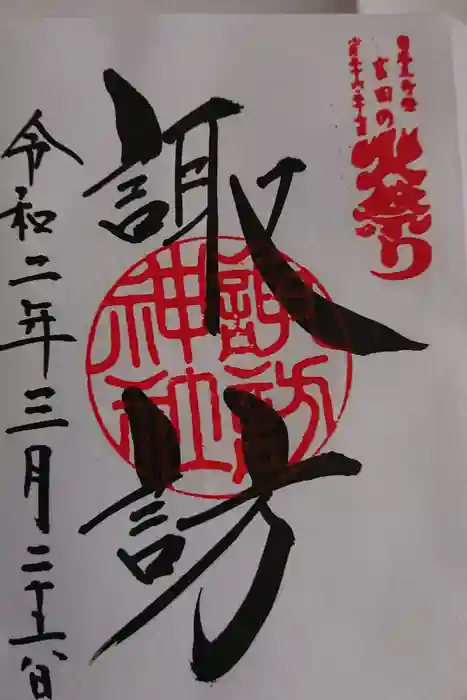 吉田の
火祭り
諏訪
諏訪
神社
令和二年三月二十五日